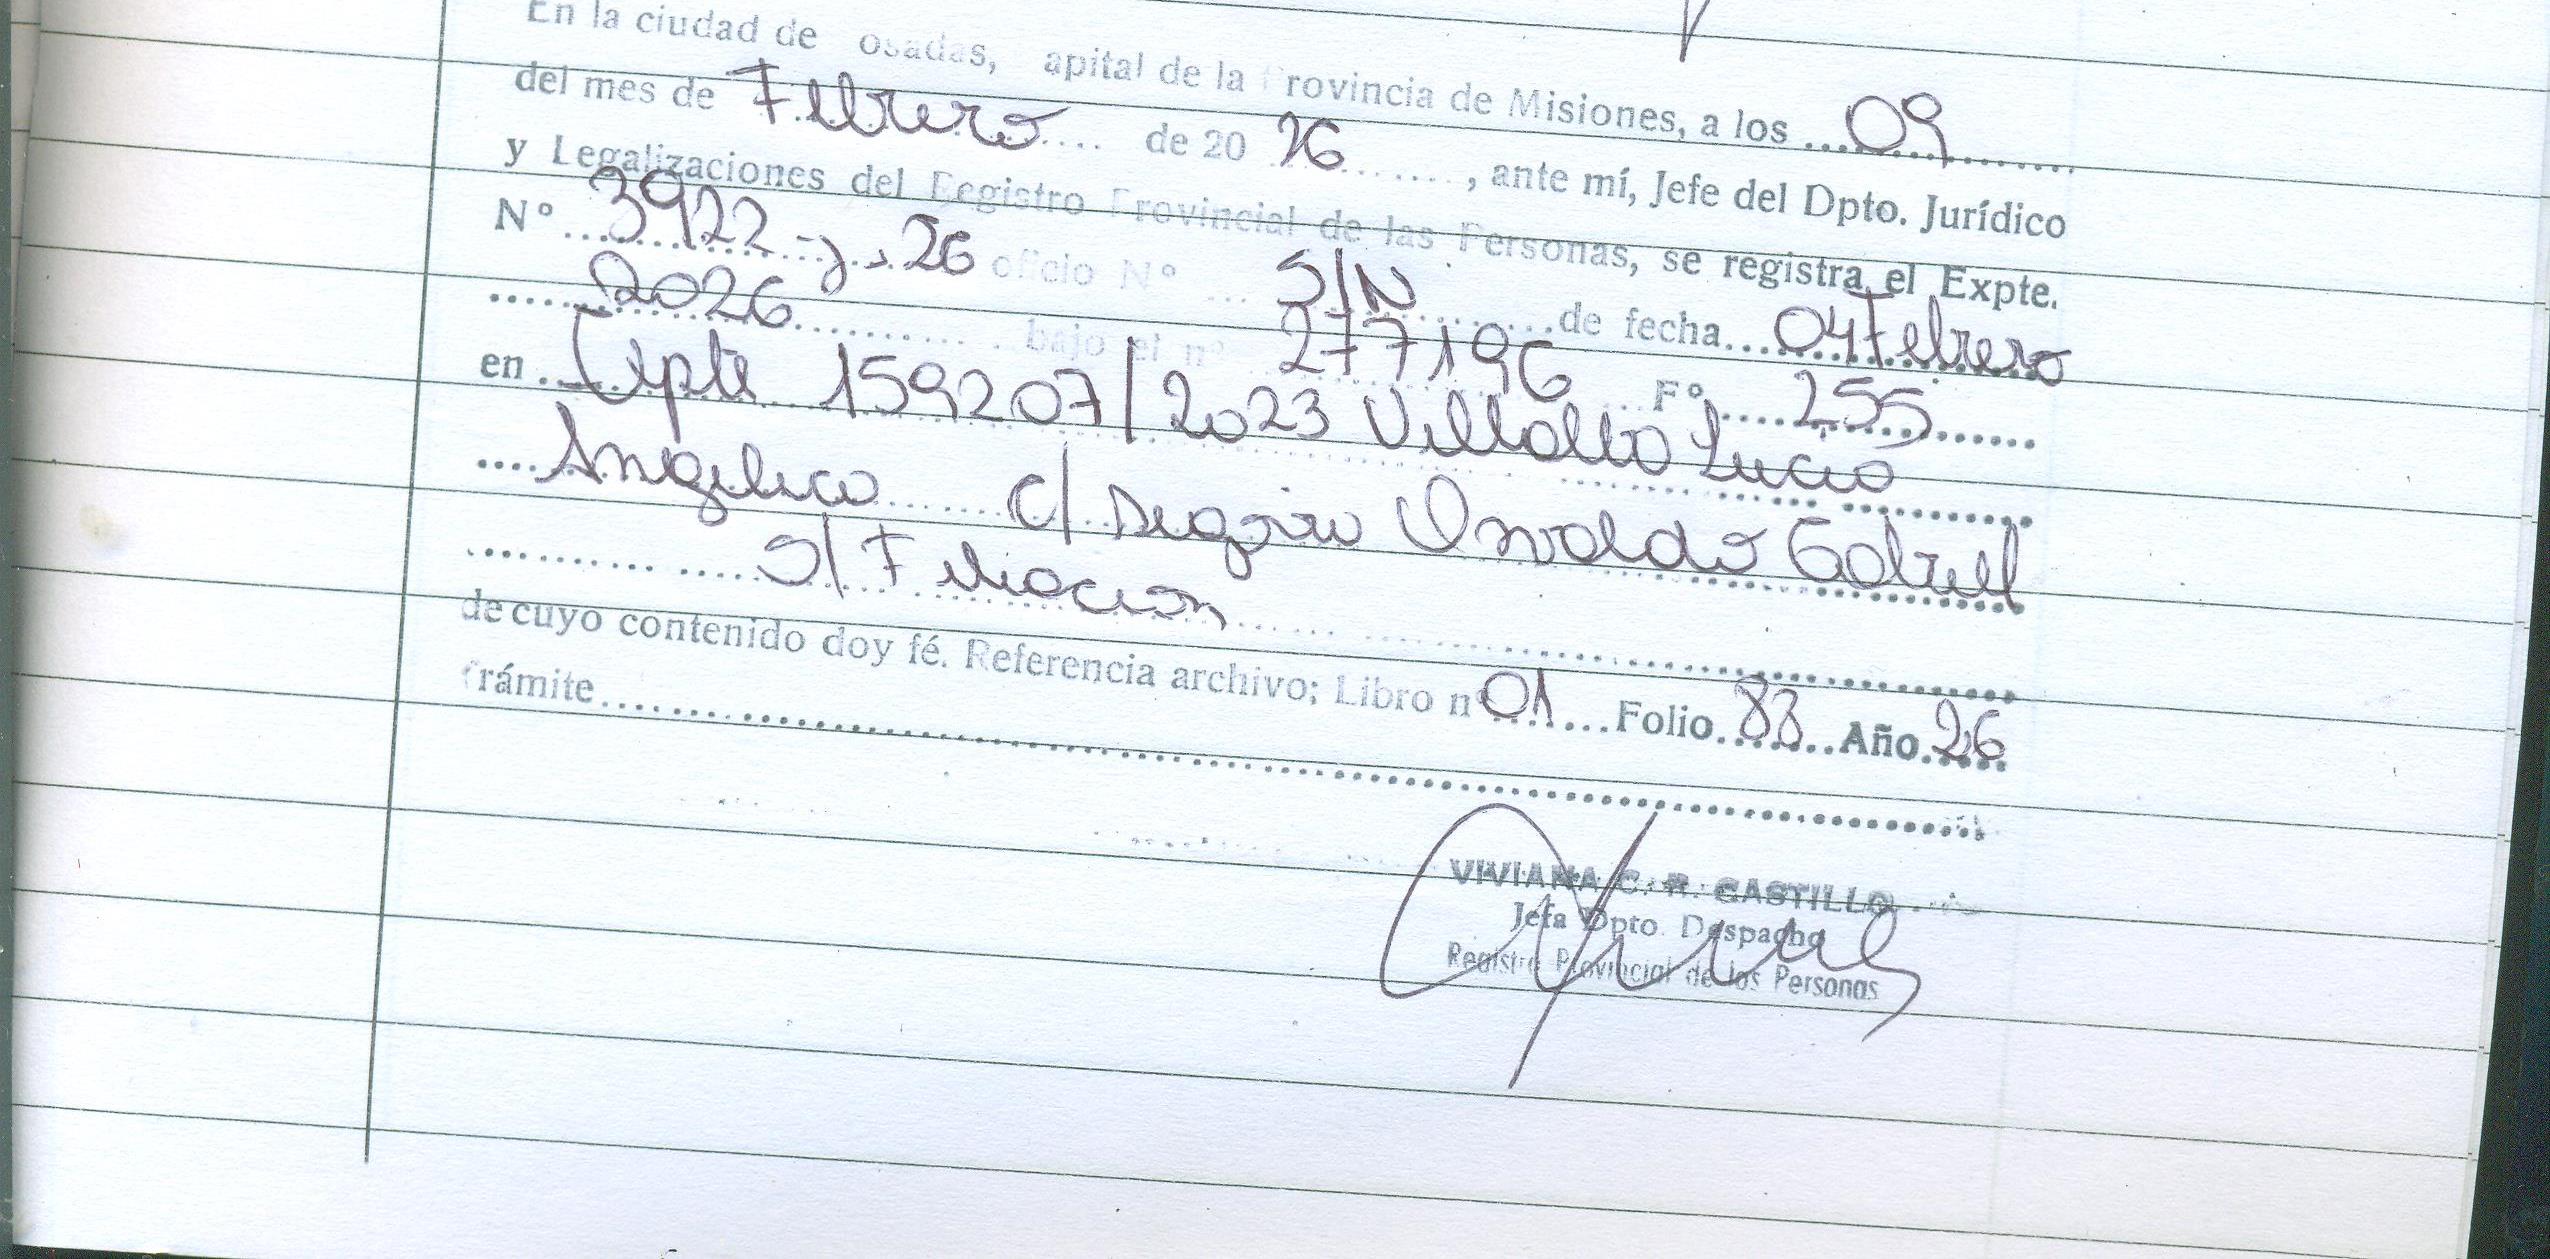 En la ciudad de osadas, apital de la Provincia de Misiones, a los ...09...
del mes de Febrero.... de 20 26 ......., ante mí, Jefe del Dpto. Jurídico
y Legalizaciones del Registro Provincial de las Personas, se registra el Expte.
Nº ...3922 - J - 26 oficio Nº ... S/N ...de fecha...04 Febrero
......2026............ bajo el nº 277196 Fº....255........
en ...Expte 159207/2023 Villalba Lucia
....Angelica.... C/ Osvaldo Gabriel
........ S/ Filiacion ........
de cuyo contenido doy fé. Referencia archivo; Libro nº 01 ...Folio.83...Año.26
trámite........
VIVIANA C. R. CASTILLO
Jefa Dpto. Despacho
Registro Provincial de las Personas